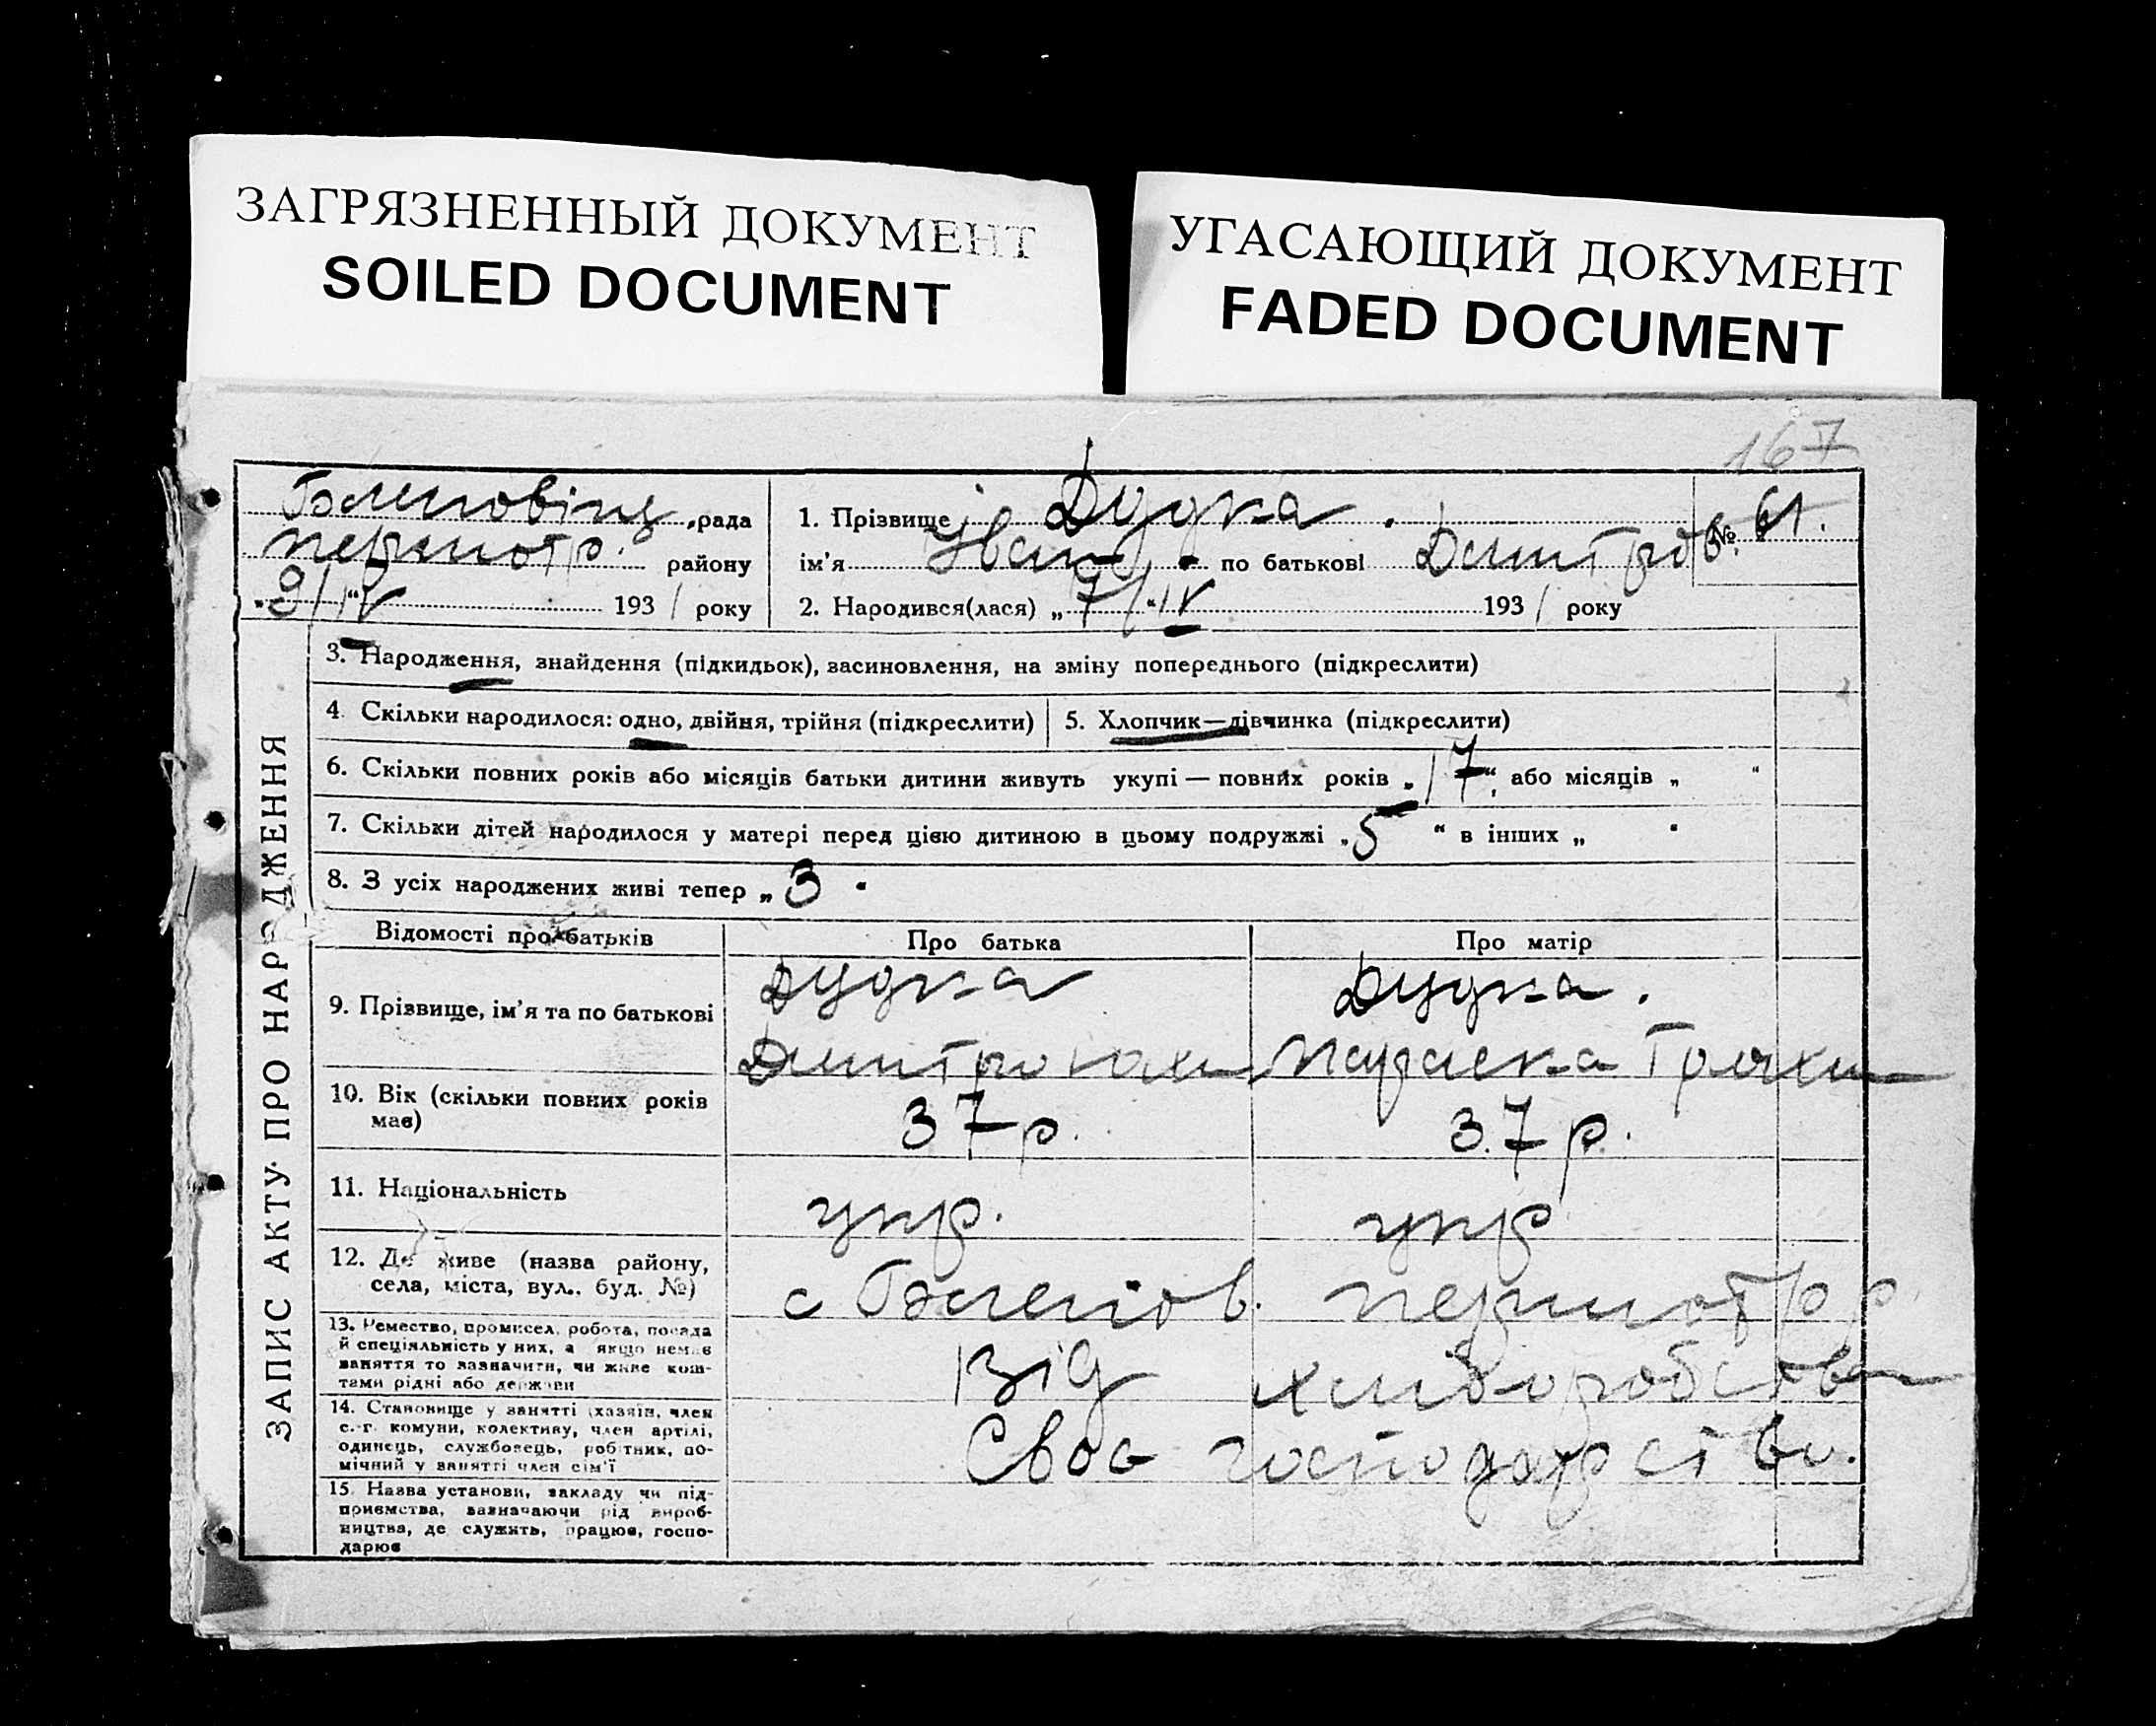 ЗАГРЯЗНЕННЫЙ ДОКУМЕНТ
SOILED DOCUMENT
УГАСАЮЩИЙ ДОКУМЕНТ
FADED DOCUMENT
167
рада
району
9/IV 1931 року
1. Прізвище Дудка.
ім'я Іван по батькові Дмитров.
2. Народився(лася) „7/IV 1931 року
№ 61.
ЗАПИС АКТУ ПРО НАРОДЖЕННЯ
3. Народження, знайдення (підкидьок), засиновлення, на зміну попереднього (підкреслити)
4. Скільки народилося: одно, двійня, трійня (підкреслити)
5. Хлопчик—дівчинка (підкреслити)
6. Скільки повних років або місяців батьки дитини живуть укупі — повних років „17“, або місяців „ “
7. Скільки дітей народилося у матері перед цією дитиною в цьому подружжі „5 “ в інших „ “
8. З усіх народжених живі тепер „3
Відомості про батьків
Про батька
Про матір
9. Прізвище, ім'я та по батькові
Дудка
Дмитро
Дудка.
Параска
10. Вік (скільки повних років
має)
37 р.
37 р.
11. Національність
укр.
укр
12. Де живе (назва району,
села, міста, вул., буд. №)
с
13. Ремество, промисел, робота, посада
й спеціяльність у них, а якщо немає
заняття то зазначити, чи живе кош-
тами рідні або держави
Від хліборобства
14. Становище у занятті (хазяїн, член
с.-г. комуни, колективу, член артілі,
одинець, службовець, робітник, по-
мічний у занятті член сім'ї
Своє господарство.
15. Назва установи, закладу чи під-
приємства, зазначаючи рід вироб-
ництва, де служить, працює, госпо-
дарює